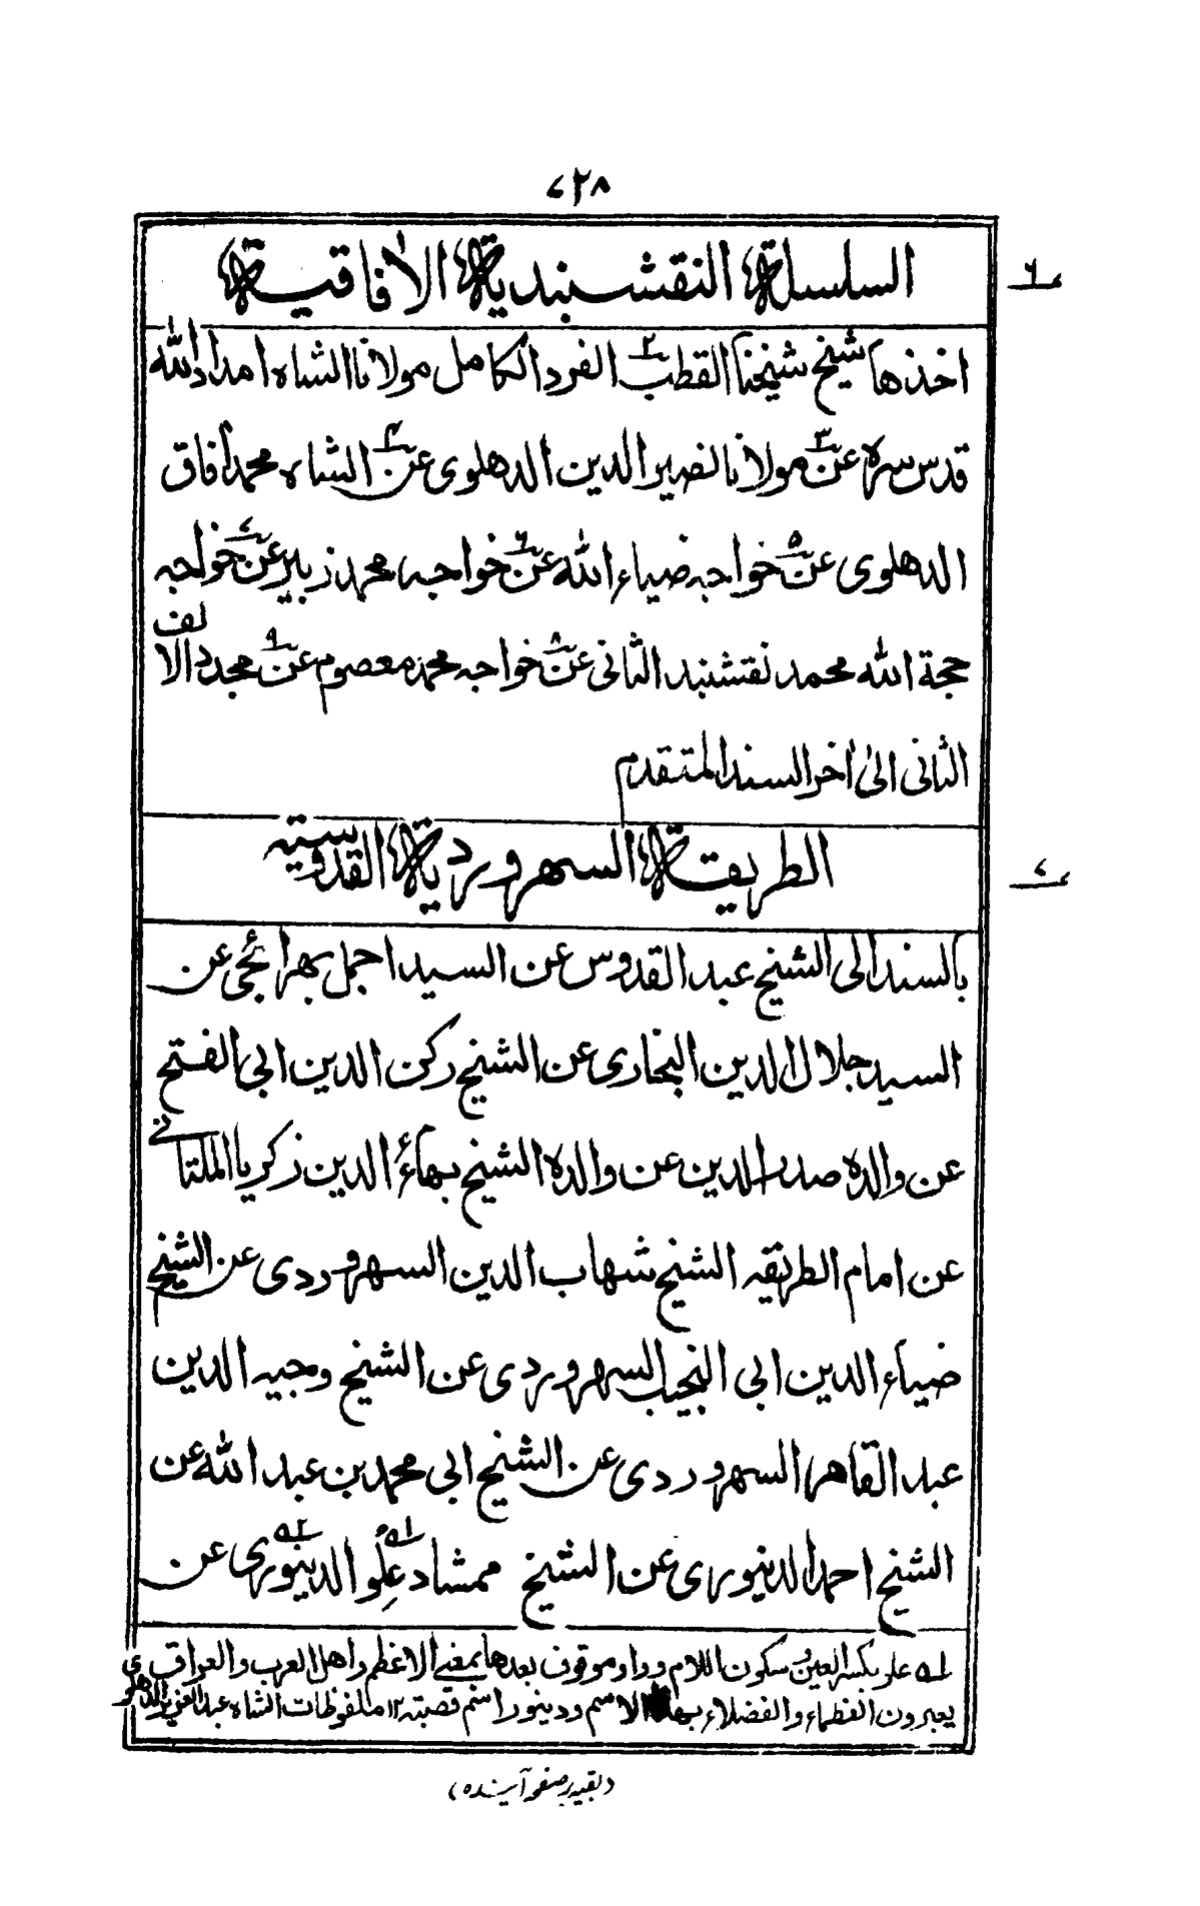 ۷۲۸
السلسلة النقشبندية الآفاقية
۶
اخذها شيخ شيخنا القطب۲ الفرد الكامل مولانا الشاه امداد الله
قدس سره عن۳ مولانا نصير الدين الدهلوى عن۴ الشاه محمد آفاق
الدهلوى عن۵ خواجه ضياء الله عن۶ خواجه محمد زبير عن۷ خواجه
حجة الله محمد نقشبند الثانى عن۸ خواجه محمد معصوم عن۹ مجدد الالف
الثانى الىٰ اٰخر السند المتقدم
الطريقة السهروردية القدوسيه
۷
بالسند الى الشيخ عبد القدوس عن السيد اجمل بهرائجى عن
السيد جلال الدين البخارى عن الشيخ ركن الدين ابى الفتح
عن والده صدر الدين عن والده الشيخ بهاء الدين زكريا الملتانے
عن امام الطريقه الشيخ شهاب الدين السهروردى عن الشيخ
ضياء الدين ابى النجيب السهروردى عن الشيخ وجيه الدين
عبد القاهر السهروردى عن الشيخ ابى محمد بن عبد الله عن
الشيخ احمد الدينورى عن الشيخ ممشاد عِلُو۱ الدينورى۲ عن
۱ علو بكسر العين و سكون اللام و واو موقوف بعدها بمعنى الاعظم واهل العرب والعراق
يعبرون العظماء والفضلاء بهذا الاسم ودينور اسم قصبة ۱۲ ملفوظات الشاه عبد العزيز الدهلوى
(بقيه بر صفحه آينده)